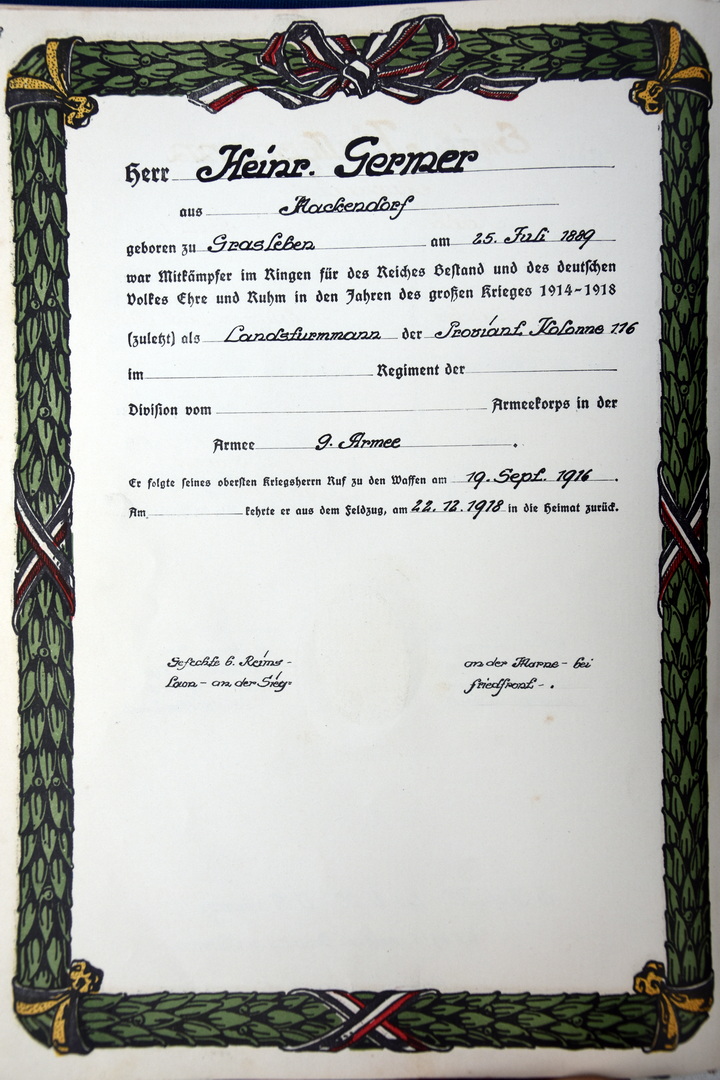 Herr Heinr. Germer
aus Mackendorf
geboren zu Grasleben am 25. Juli 1889
war Mitkämpfer im Ringen für des Reiches Bestand und des deutschen
Volkes Ehre und Ruhm in den Jahren des großen Krieges 1914-1918
(zuletzt) als Landsturmmann der Proviant Kolonne 116
im Regiment der
Division vom Armeekorps in der
Armee 9. Armee .
Er folgte seines obersten Kriegsherrn Ruf zu den Waffen am 19. Sept. 1916 .
Am kehrte er aus dem Feldzug, am 22. 12. 1918 in die Heimat zurück.
Gefechte b. Reims -
Laon - an der Sieg-
an der Marne - bei